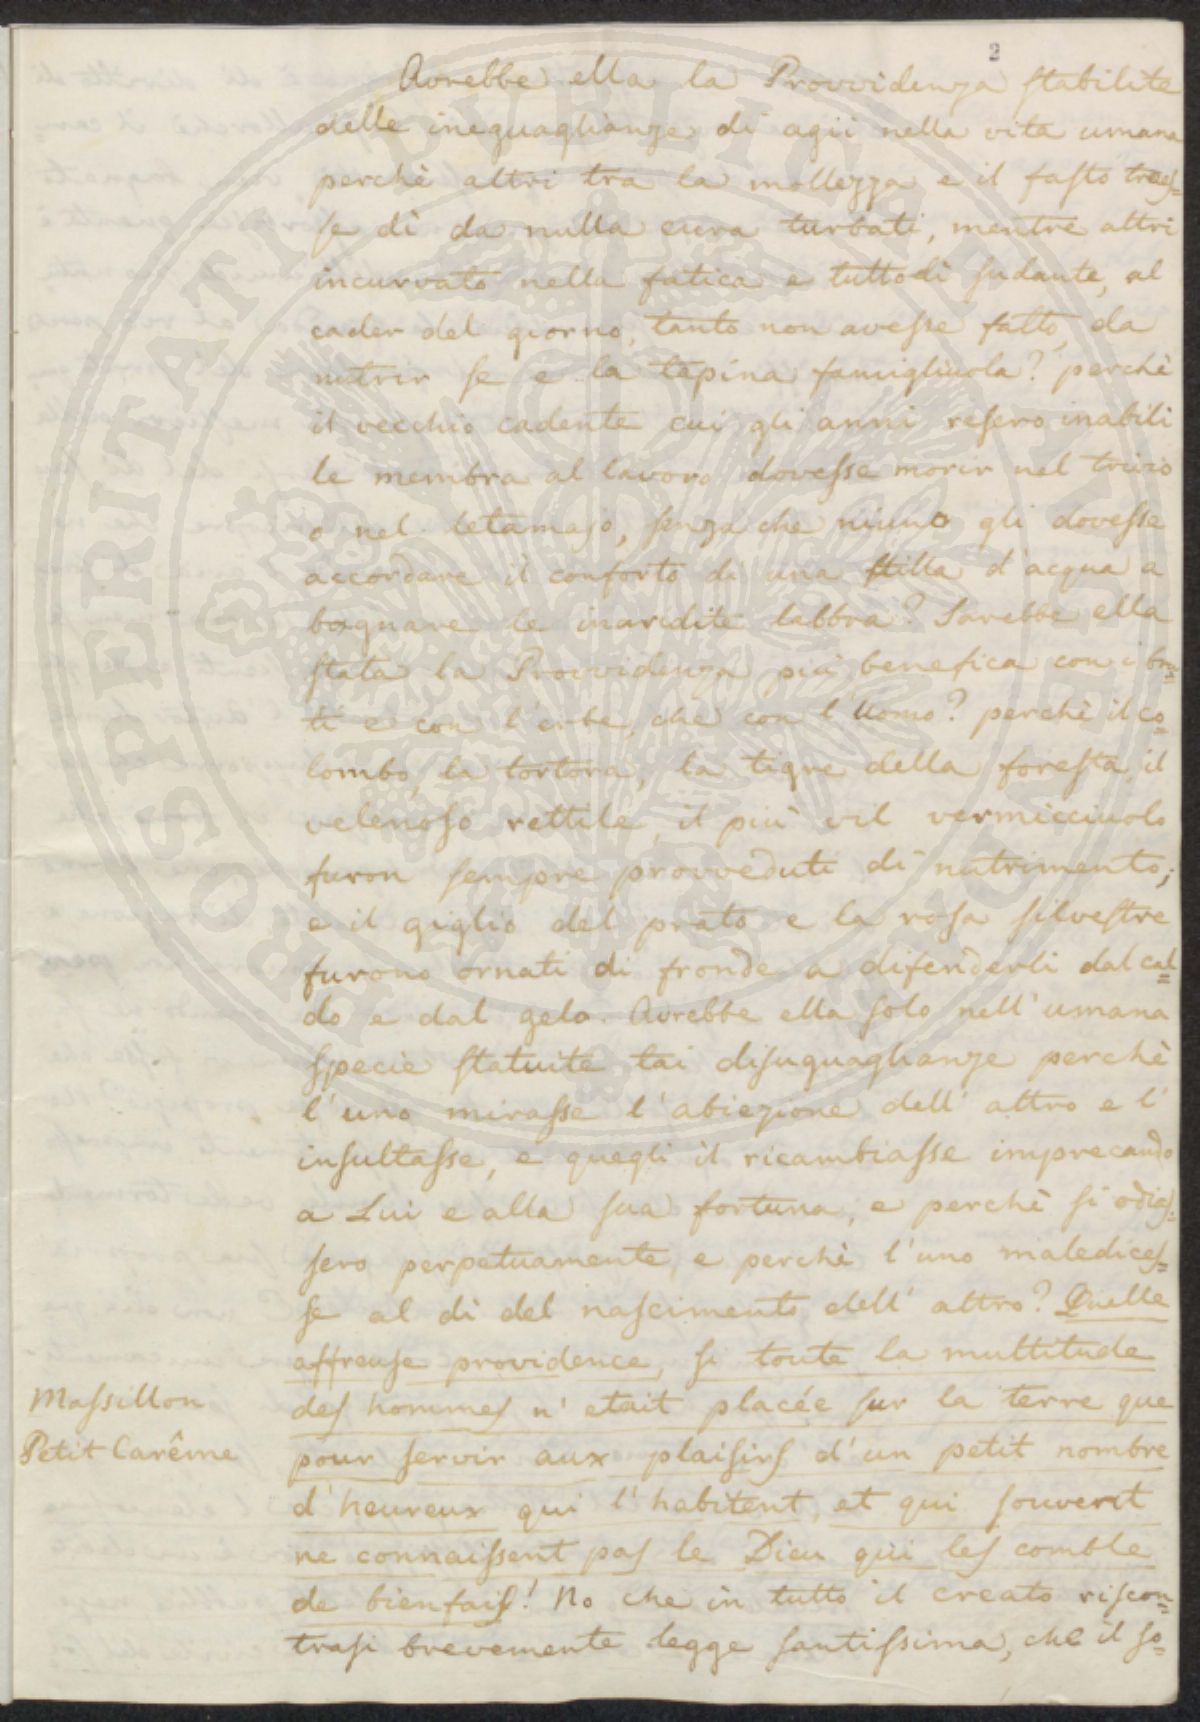 2
Avrebbe ella la Provvidenza stabilite
delle ineguaglianze di agii nella vita umana
perchè altri tra la mollezza e il fasto traes=
se dì da nulla cura turbati, mentre altri
incurvato nella fatica e tuttodì sudante, al
cader del giorno, tanto non avesse fatto, da
nutrir se e la tapina famigliuola? perchè
il vecchio cadente cui gli anni resero inabili
le membra al lavoro dovesse morir nel trivio
o nel letamajo, senza che niuno gli dovesse
accordare il conforto di una stilla d'acqua a
bagnare le inaridite labbra? Sarebbe ella
stata la Provvidenza più benefica con i bru=
ti e con l'erbe, che con l'Uomo? perchè il co=
lombo, la tortora, la tigre della foresta, il
velenoso rettile, il più vil vermicciuolo
furon sempre provveduti di nutrimento;
e il giglio del prato e la rosa silvestre
furono ornati di fronde a difenderli dal cal=
do e dal gelo. Avrebbe ella solo nell'umana
specie statuite tai disuguaglianze perchè
l'uno mirasse l'abiezione dell'altro e l'
insultasse, e quegli il ricambiasse imprecando
a Lui e alla sua fortuna, e perchè si odias=
sero perpetuamente, e perchè l'uno maledices=
se al dì del nascimento dell'altro? Quelle
affreuse providence, si toute la multitude
des hommes n'etait placée sur la terre que
Massillon
Petit Carême
pour servir aux plaisirs d'un petit nombre
d'heureux qui l'habitent, et qui souvent
ne connaissent pas le Dieu qui les comble
de bienfais! No che in tutto il creato riscon=
trasi brevemente legge santissima, che il so=
PROSPERITATI PUBLICAE AUGENDAE